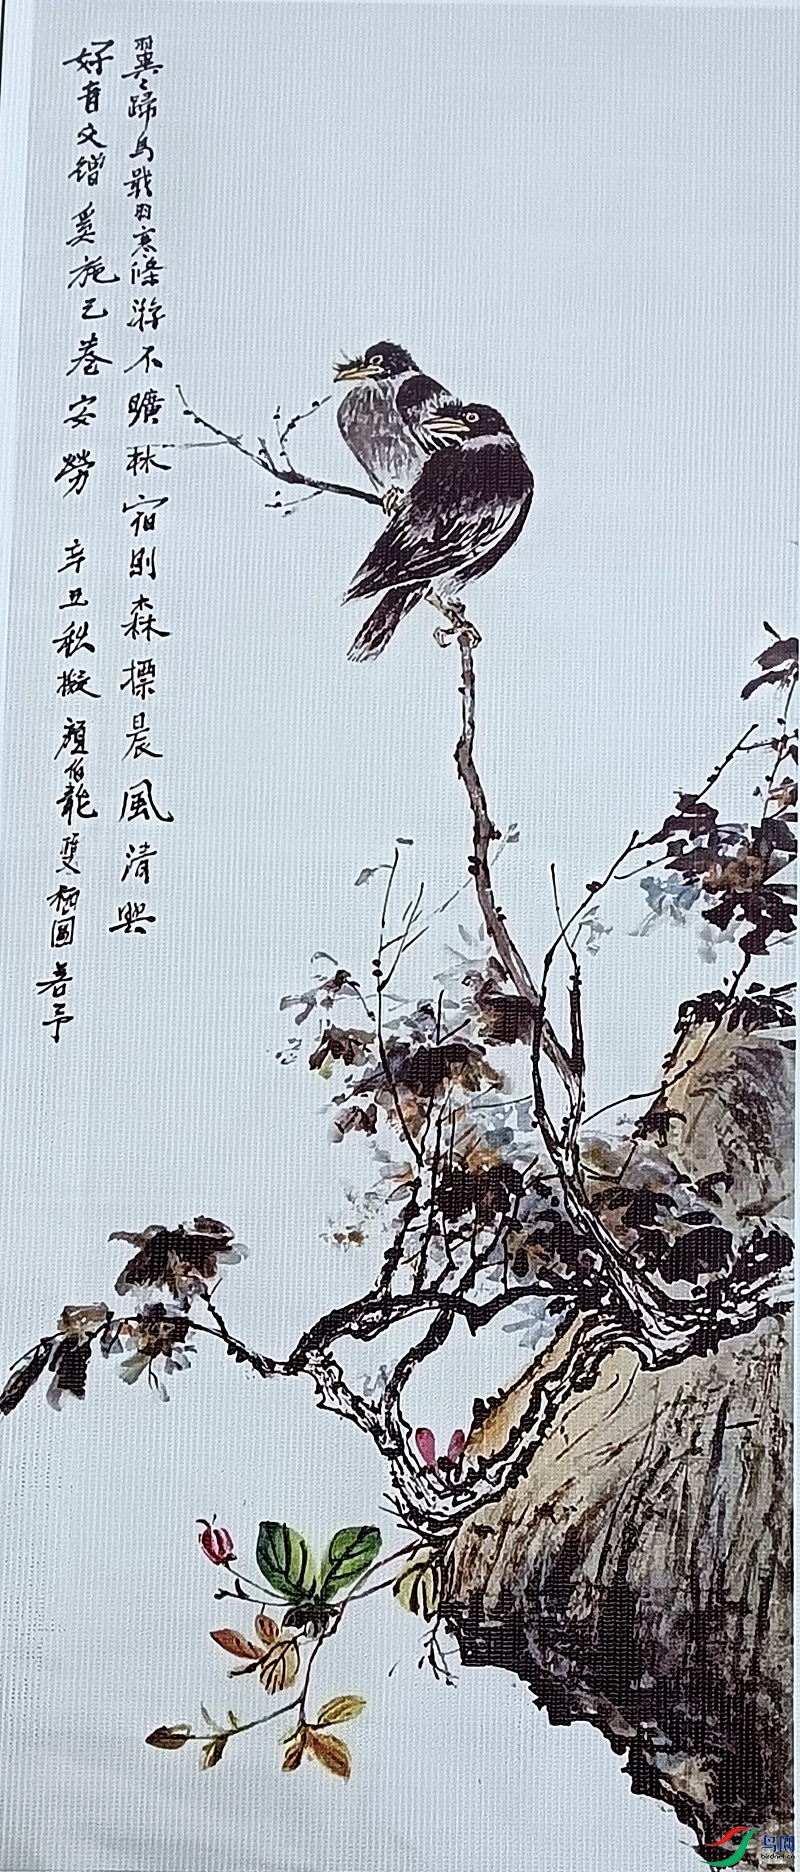 翼〻歸鳥戢羽寒條游不曠林宿則森標晨風清興
好音交矰奚施已卷安勞 辛丑秋擬顏伯龍雙栖圖 予
鸟网
birdnet.cn